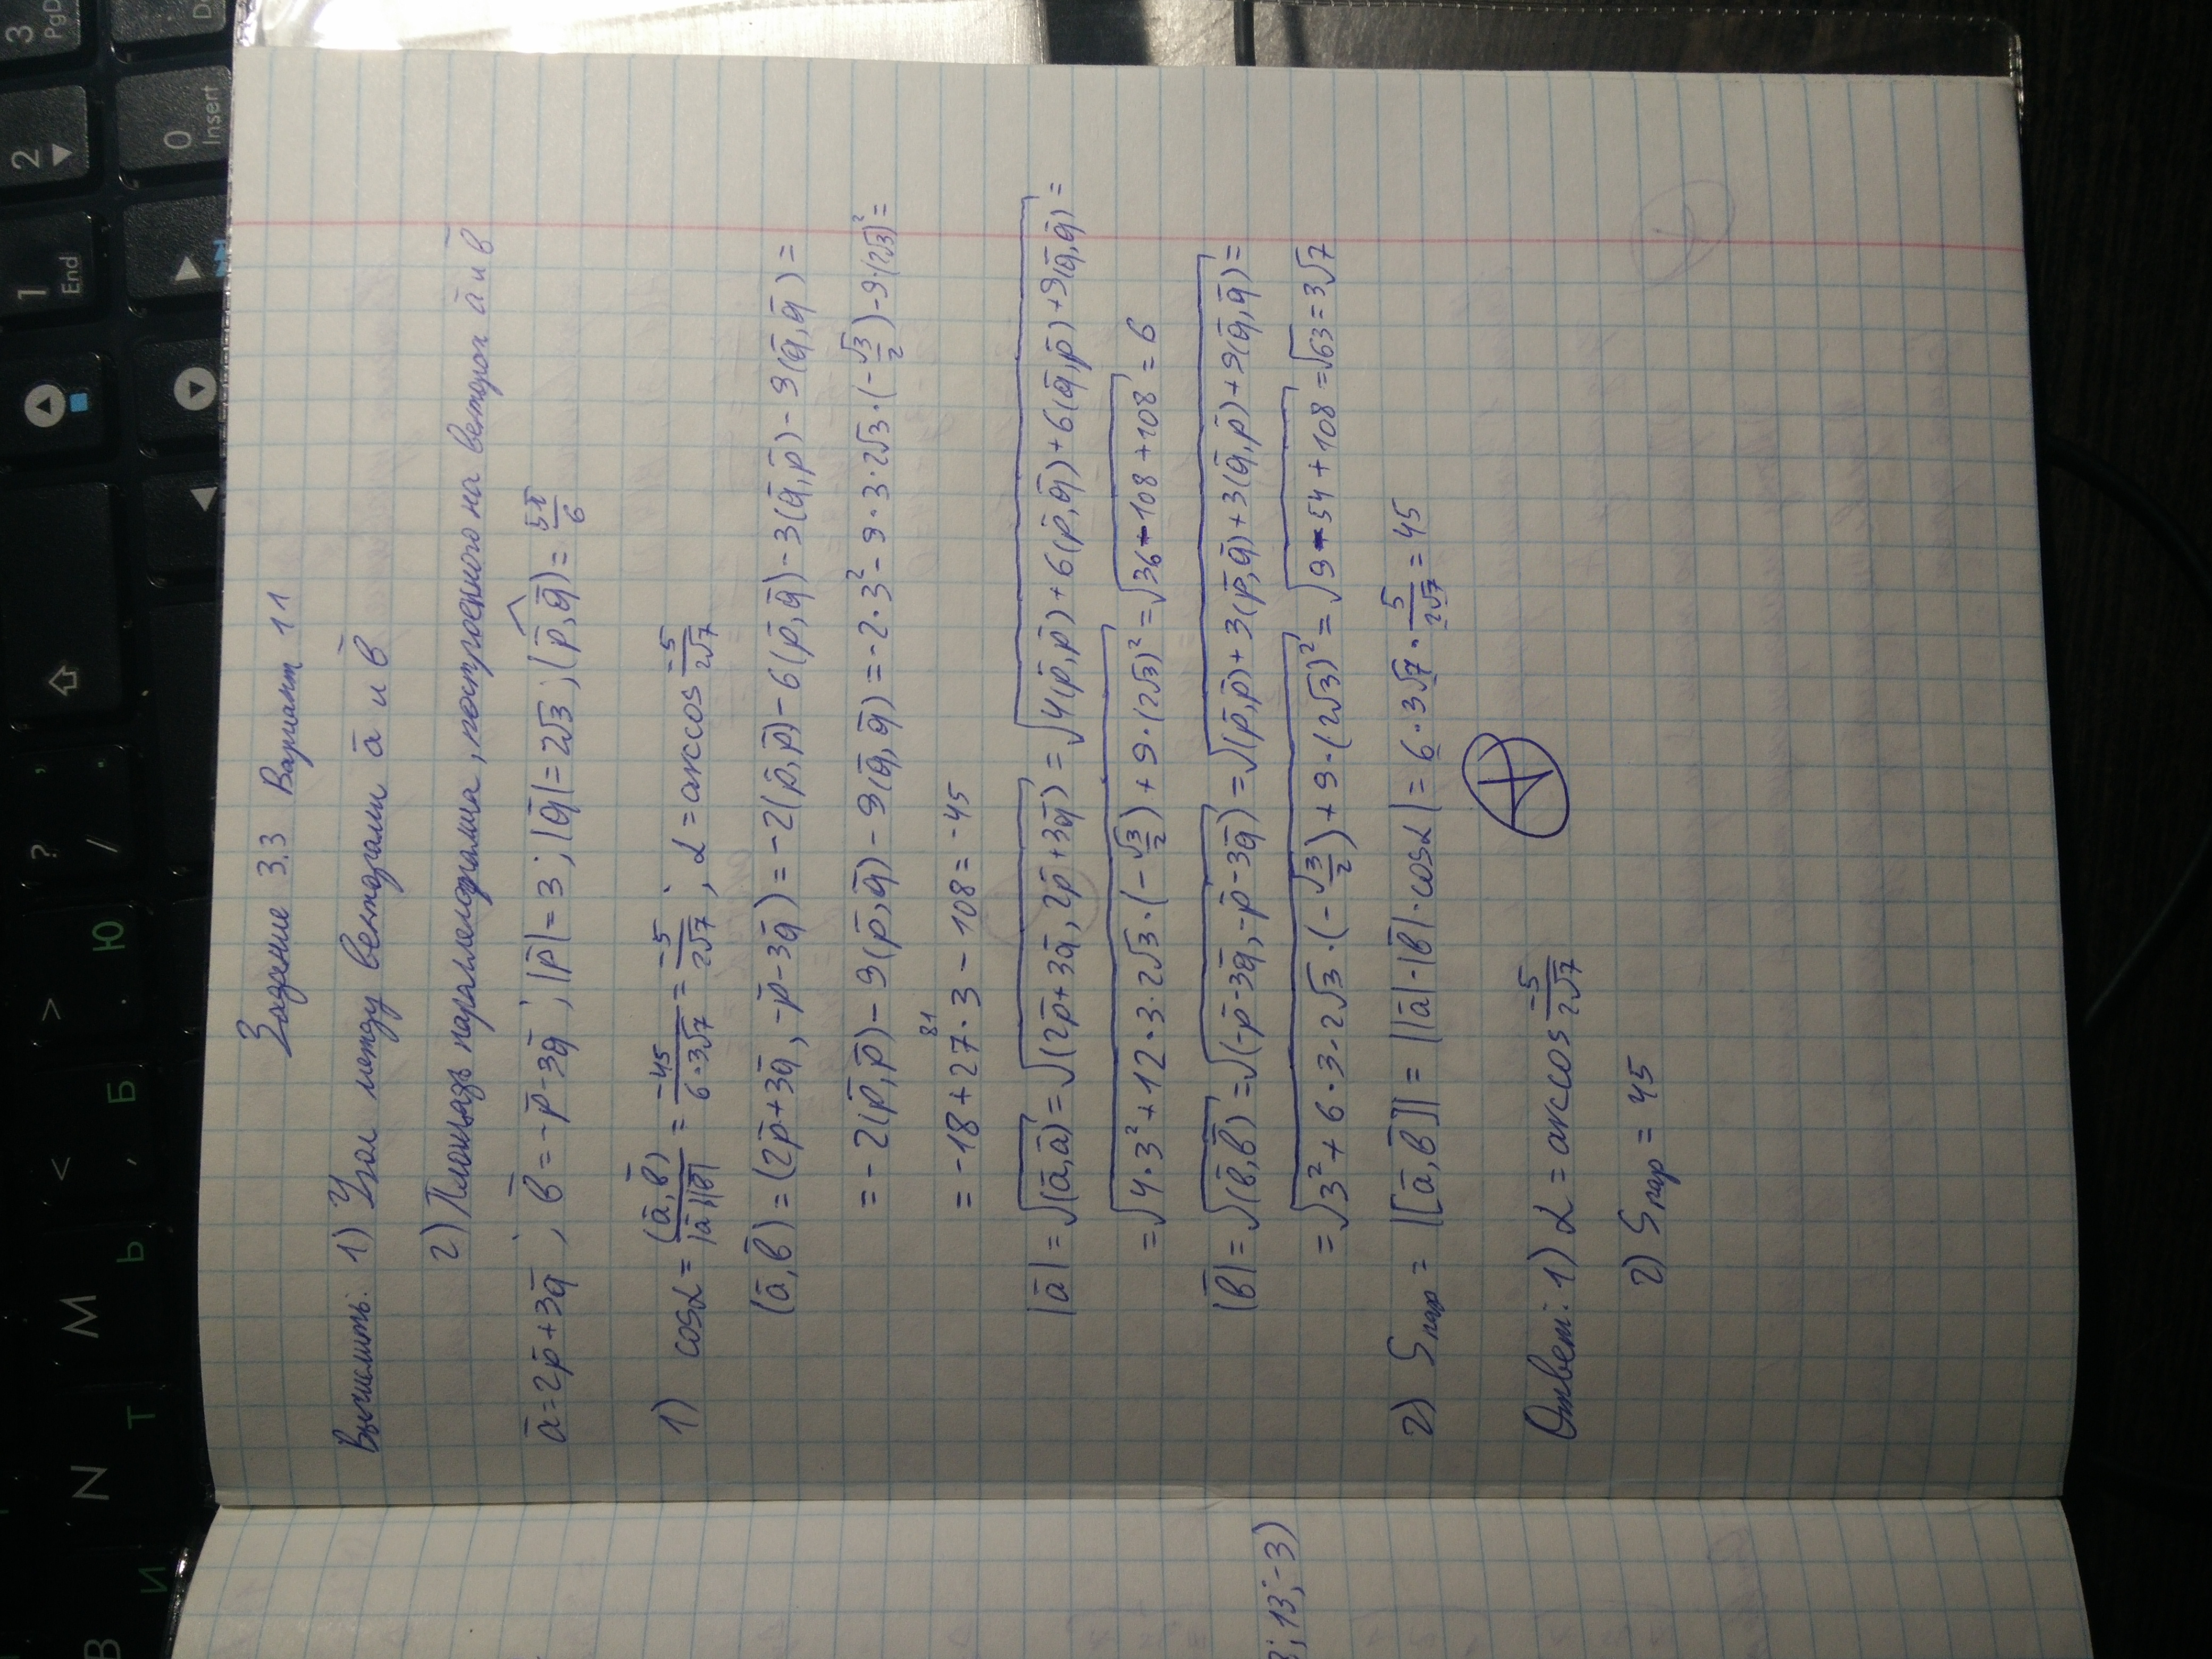 Задание 3.3 Вариант 11
Вычислить: 1) Угол между векторами ā и b̄
2) Площадь параллелограмма, построенного на векторах ā и b̄
ā = 2p̄ + 3q̄ ; b̄ = -p̄ - 3q̄ ; |p̄| = 3 ; |q̄| = 2√3 ; (p̄,^q̄) = 5π/6
1) cosα = (ā,b̄)/|ā||b̄| = -45/(6·3√7) = -5/(2√7) ; α = arccos -5/(2√7)
(ā,b̄) = (2p̄+3q̄, -p̄-3q̄) = -2(p̄,p̄) - 6(p̄,q̄) - 3(q̄,p̄) - 9(q̄,q̄) =
= -2(p̄,p̄) - 9(p̄,q̄) - 9(q̄,q̄) = -2·3² - 9·3·2√3·(-√3/2) - 9·(2√3)² =
81
= -18 + 27·3 - 108 = -45
|ā| = √(ā,ā) = √(2p̄+3q̄, 2p̄+3q̄) = √4(p̄,p̄) + 6(p̄,q̄) + 6(q̄,p̄) + 9(q̄,q̄) =
= √4·3² + 12·3·2√3·(-√3/2) + 9·(2√3)² = √36 - 108 + 108 = 6
|b̄| = √(b̄,b̄) = √(-p̄-3q̄, -p̄-3q̄) = √(p̄,p̄) + 3(p̄,q̄) + 3(q̄,p̄) + 9(q̄,q̄) =
= √3² + 6·3·2√3·(-√3/2) + 9·(2√3)² = √9 - 54 + 108 = √63 = 3√7
2) Sпар = |[ā,b̄]| = ||ā|·|b̄|·cosα| = 6·3√7·5/(2√7) = 45
Ответ: 1) α = arccos -5/(2√7)
2) Sпар = 45
3
PgD
2
1
End
0
Insert
?
/
.
>
<
,
Ю
Б
M
Ь
N
Т
И
B
;13;-3)